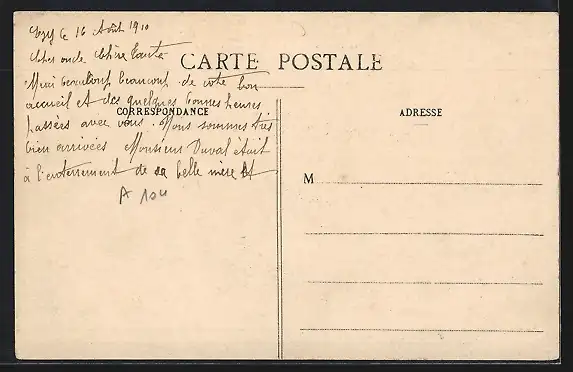 Ezy le 16 Août 1910
Cher oncle Chère Tante
CARTE POSTALE
Merci beaucoup beaucoup de votre bon
accueil et des quelques bonnes heures
CORRESPONDANCE
ADRESSE
passées avec vous. Nous sommes très
bien arrivées Monsieur Duval était
à l'enterrement de sa belle mère et
M
A 104